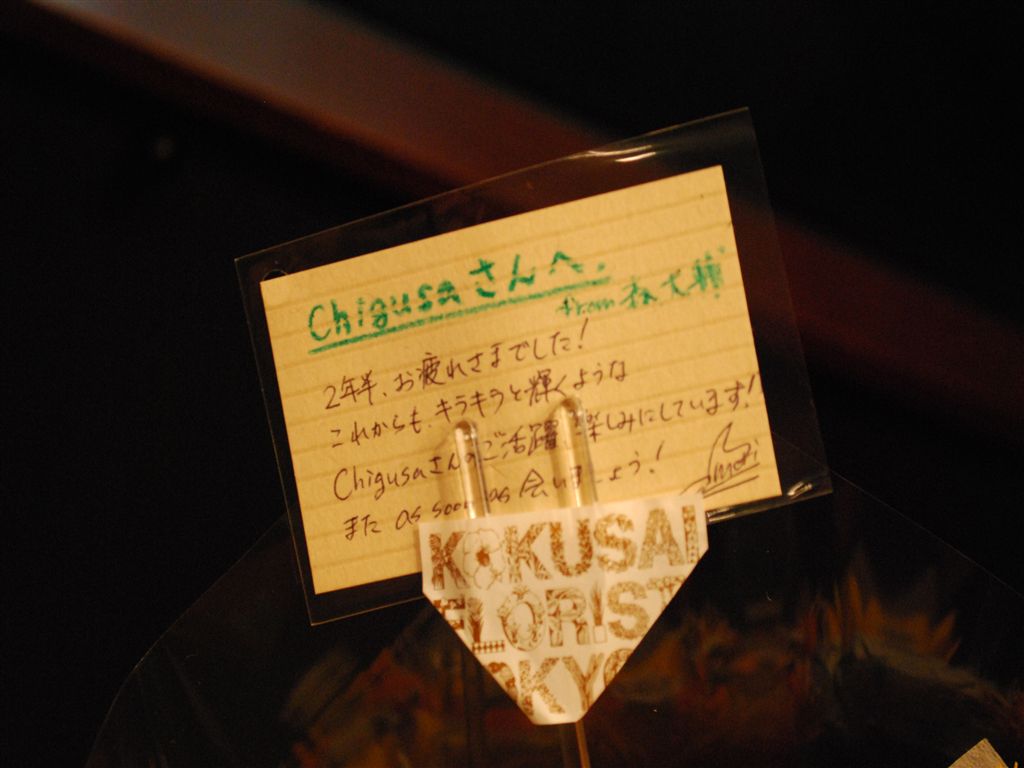 Chigusaさんへ.
from 森 大輔
2年半、お疲れさまでした!
これからも、キラキラと輝くような
Chigusaさんのご活躍 楽しみにしています!
また as soon as 会いましょう!
KOKUSAI
FLORIST
TOKYO